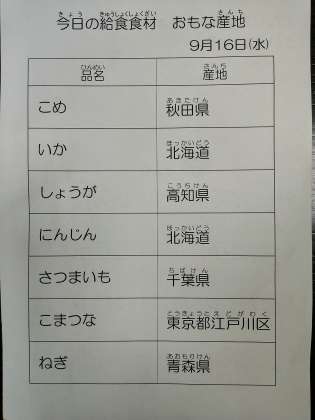 今日の給食食材 おもな産地
9月16日(水)
品名 産地
こめ 秋田県
いか 北海道
しょうが 高知県
にんじん 北海道
さつまいも 千葉県
こまつな 東京都江戸川区
ねぎ 青森県